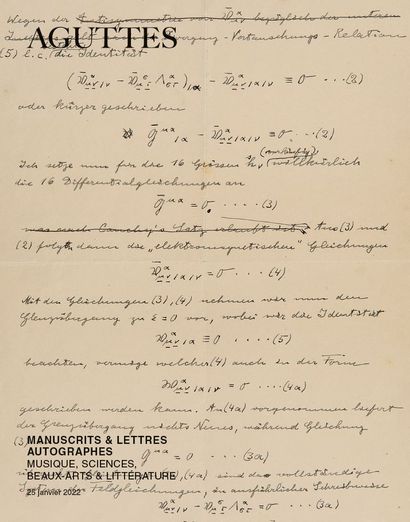 Wegen der Antisymmetrie von 𝔚̄^α_μν bezüglich der unteren
AGUTTES
Vertauschungs-Relation
(5) l.c. die Identität
(𝔚̄^α_μν/ν − 𝔚̄^σ_μτ Λ^α_στ)/α − 𝔚̄^α_μν/α/ν ≡ 0 ···(2)
oder kürzer geschrieben
𝔊̄^μα/α − 𝔚̄^α_μν/α/ν ≡ 0 ····(2)
Ich setze nun für die 16 Grössen ˢh_ν (vorläufig) willkürlich
die 16 Differentialgleichungen an
𝔊̄^μα = 0. ····(3)
was nach Cauchy's Satz erlaubt ist. Aus (3) und
(2) folgen dann die „elektromagnetischen" Gleichungen
𝔚̄^α_μν/α/ν = 0 ····(4)
Mit den Gleichungen (3), (4) nehmen wir nun den
Grenzübergang zu ε = 0 vor, wobei wir die Identität
𝔚̄^α_μν/α ≡ 0 ····(5)
beachten, vermöge welcher (4) auch in der Form
𝔚^α_μν/α/ν = 0 ····(4a)
geschrieben werden kann. An (4a) vorgenommen liefert
der Grenzübergang nichts Neues, während Gleichung
(3)
MANUSCRITS & LETTRES
AUTOGRAPHES
𝔊^μα = 0 ···(3a)
MUSIQUE, SCIENCES,
BEAUX-ARTS & LITTÉRATURE
(4a) sind das vollständige
25 janvier 2022
Feldgleichungen, in ausführlicher Schreibweise
= 0 ···(3a)